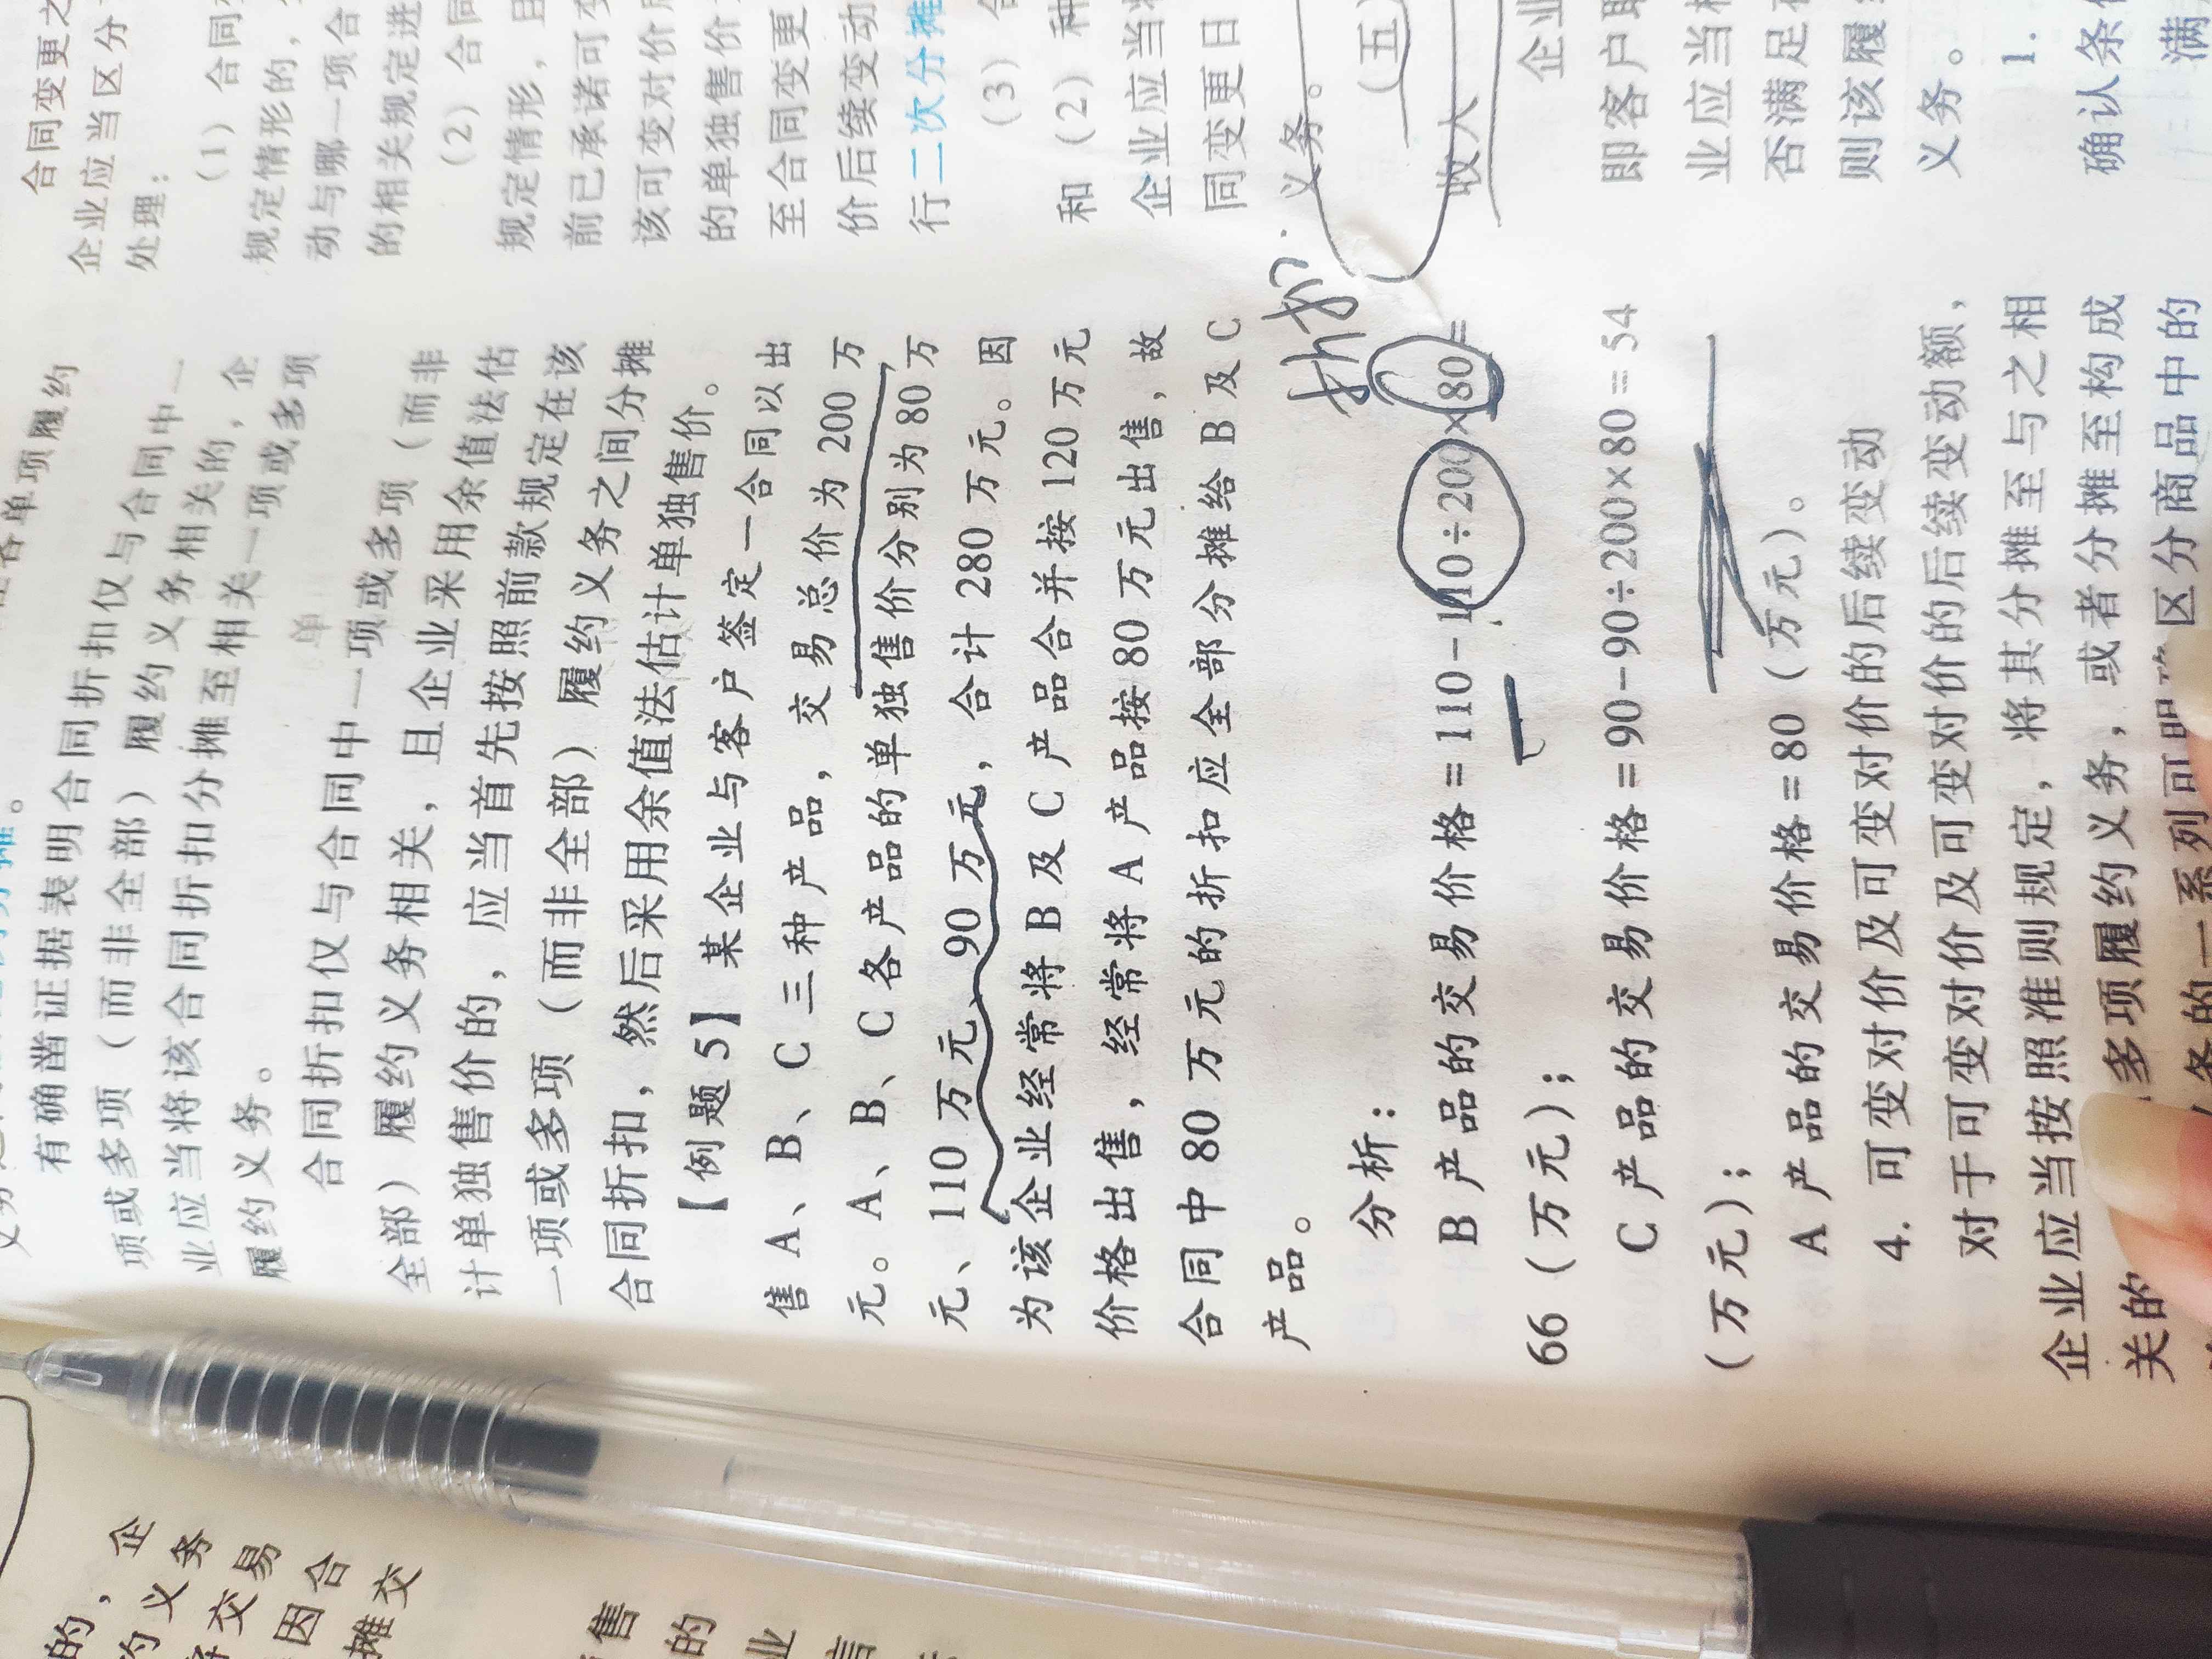 有确凿证据表明合同折扣仅与合同中一
项或多项（而非全部）履约义务相关的，企
业应当将该合同折扣分摊至相关一项或多项
履约义务。
合同折扣仅与合同中一项或多项（而非
全部）履约义务相关，且企业采用余值法估
计单独售价的，应当首先按照前款规定在该
一项或多项（而非全部）履约义务之间分摊
合同折扣，然后采用余值法估计单独售价。
【例题 5】 某企业与客户签定一合同以出
售 A、B、C 三种产品，交易总价为 200 万
元。A、B、C 各产品的单独售价分别为 80 万
元、110 万元、90 万元，合计 280 万元。因
为该企业经常将 B 及 C 产品合并按 120 万元
价格出售，经常将 A 产品按 80 万元出售，故
合同中 80 万元的折扣应全部分摊给 B 及 C
产品。
折扣
分析：
B 产品的交易价格=110-110÷200×80=
66（万元）；
C 产品的交易价格=90-90÷200×80=54
（万元）；
A 产品的交易价格=80（万元）。
4. 可变对价及可变对价的后续变动
对于可变对价及可变对价的后续变动额，
企业应当按照准则规定，将其分摊至与之相
关的
多项履约义务，或者分摊至构成
区分商品中的
合同变更之
企业应当区分
处理：
（1）合同
规定情形的，
动与哪一项合
的相关规定进
（2）合同
规定情形，且
前已承诺可变
该可变对价
的单独售价
至合同变更
价后续变动
行二次分摊
（3）合
和（2）种
企业应当
同变更日
义务。
（五）
收入
企业
即客户取
业应当
否满足
则该履
义务。
1.
确认条
满